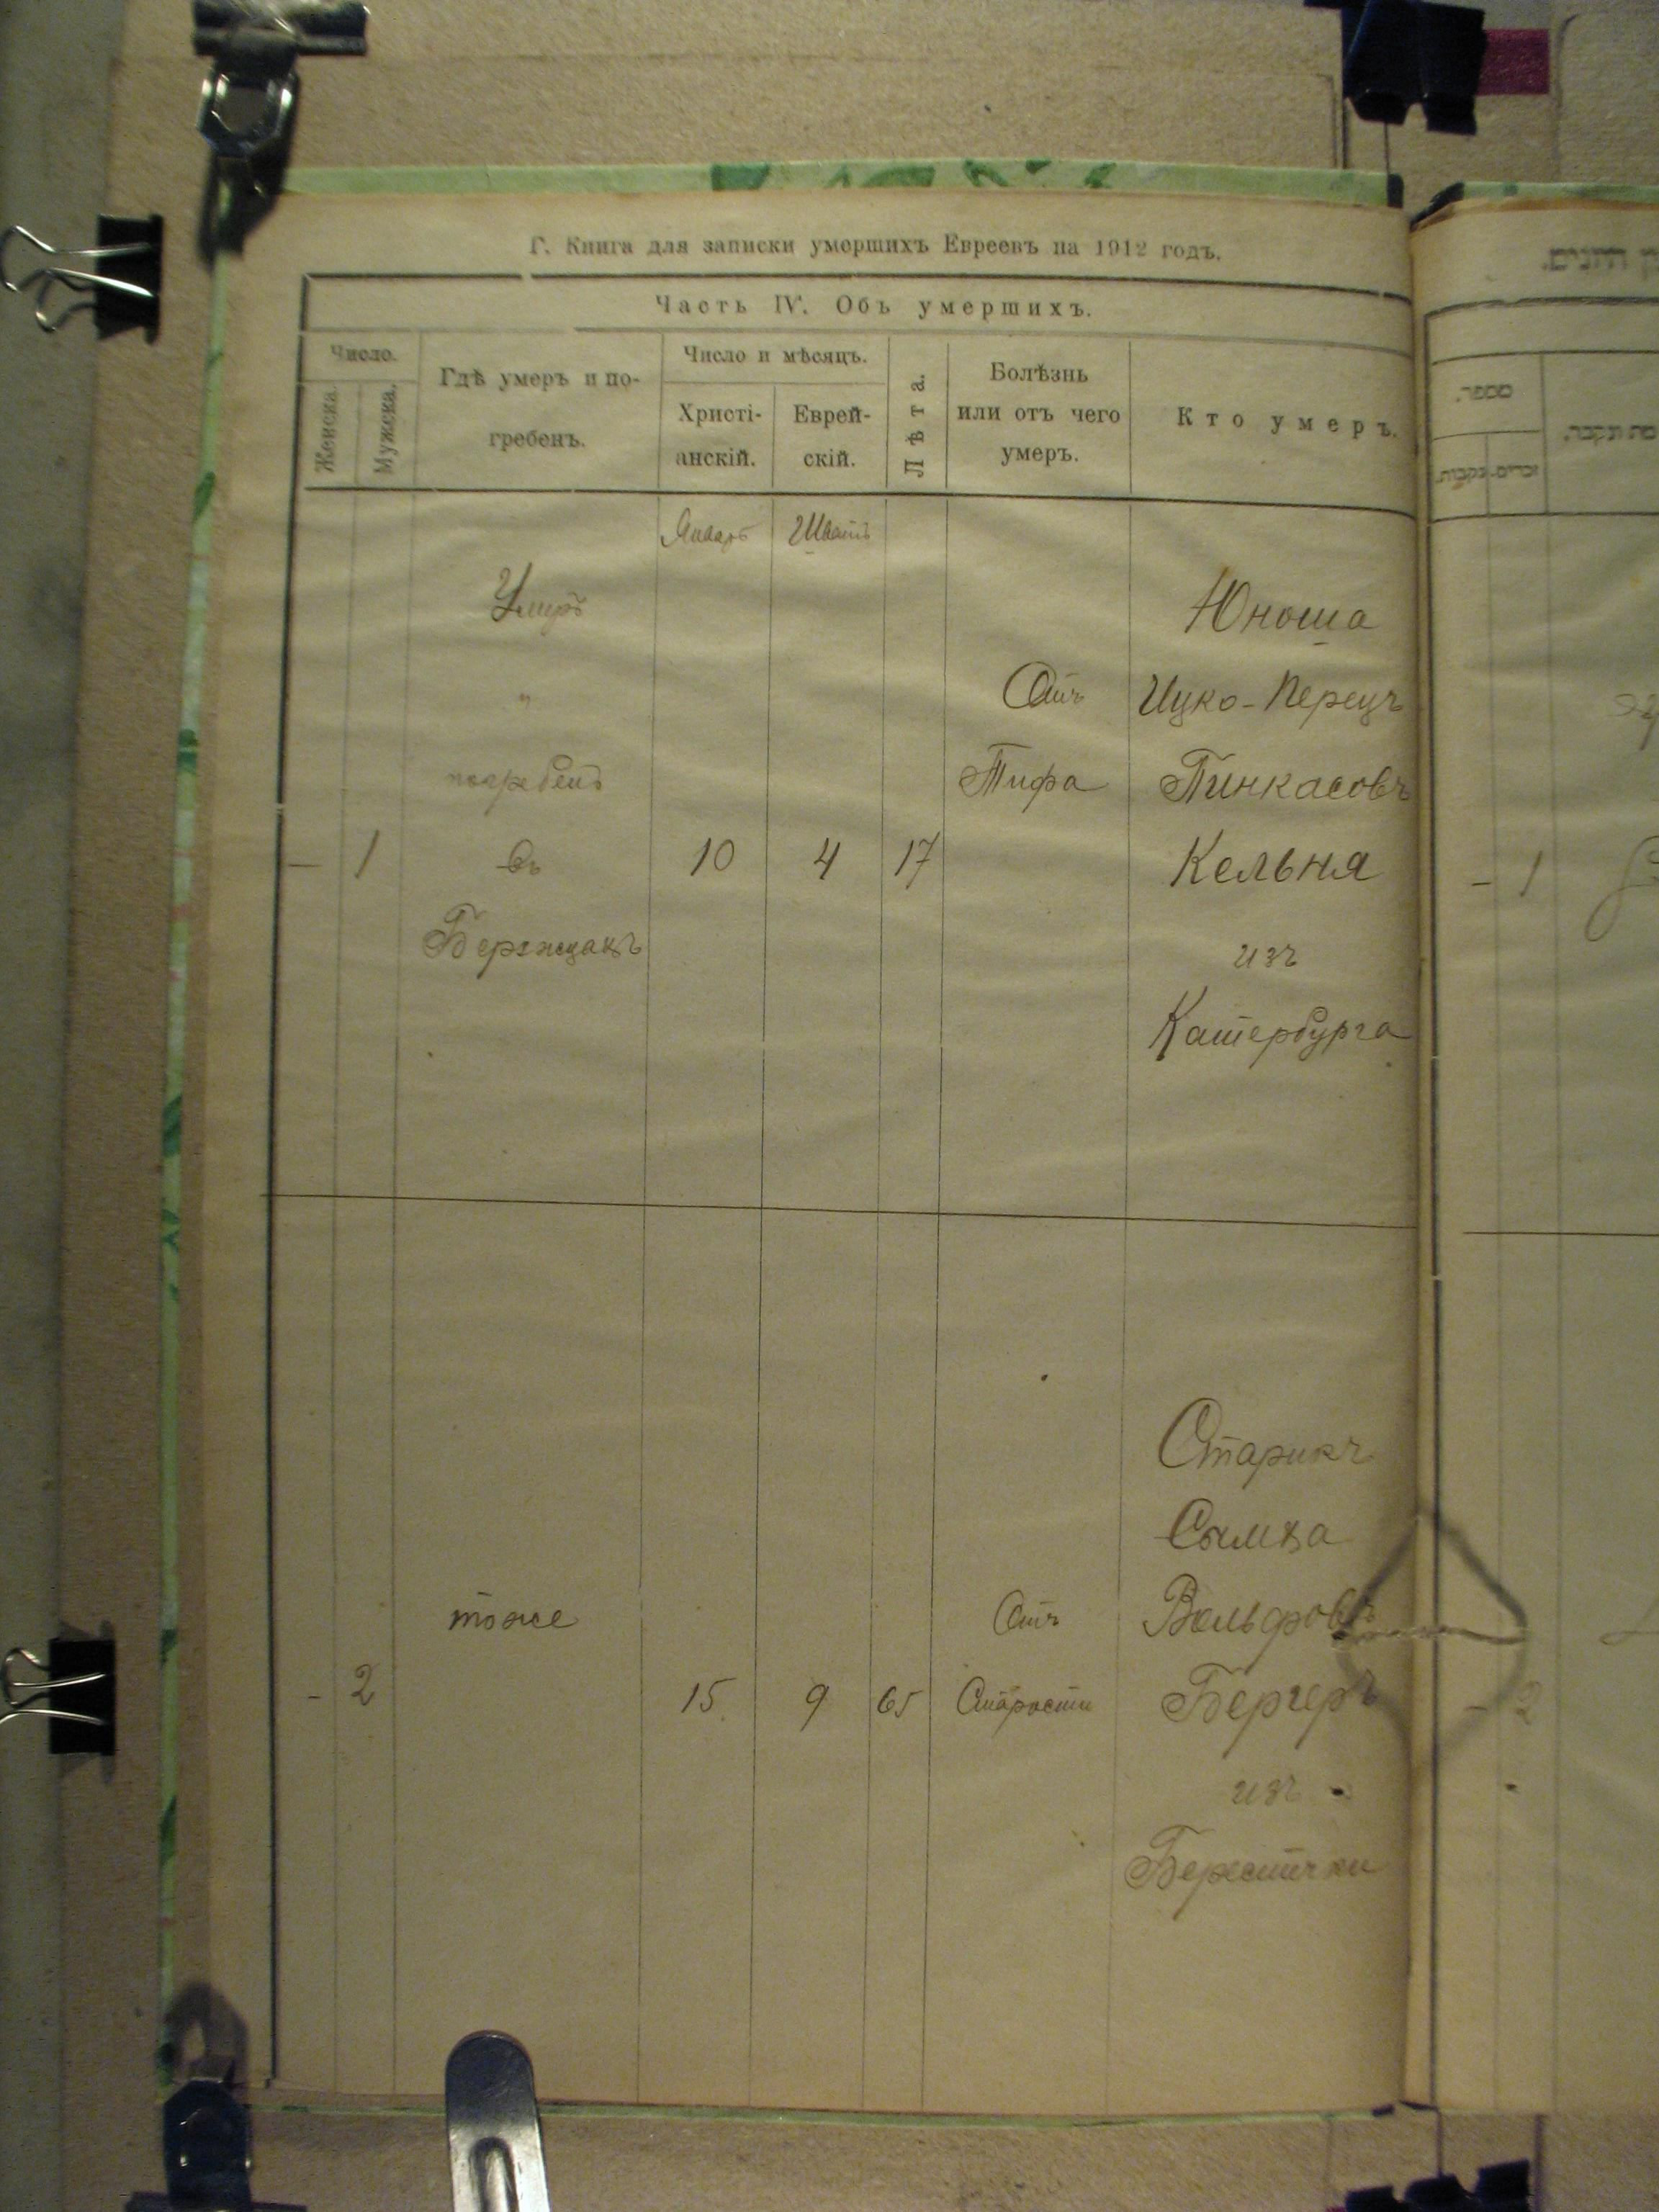 Г. Книга для записки умершихъ Евреевъ на 1912 годъ.
Часть IV. Объ умершихъ.
Число.
Женска.
Мужска.
Гдѣ умеръ и по-
гребенъ.
Число и мѣсяцъ.
Христі-
анскій.
Еврей-
скій.
Лѣта.
Болѣзнь
или отъ чего
умеръ.
Кто умеръ.
Январь
Шватъ
Умеръ
Юноша
"
Отъ
Ицко-Перецъ
погребенъ
Тифа
Пинкасовъ
— 1 въ 10 4 17 Кельня
изъ
Катербурга
Старикъ
Вольфовъ
тоже
Отъ
- 2 15 9 65 Старости Бергеръ
изъ
מספר.
זכרים.
נקבות.
- 1
- 2